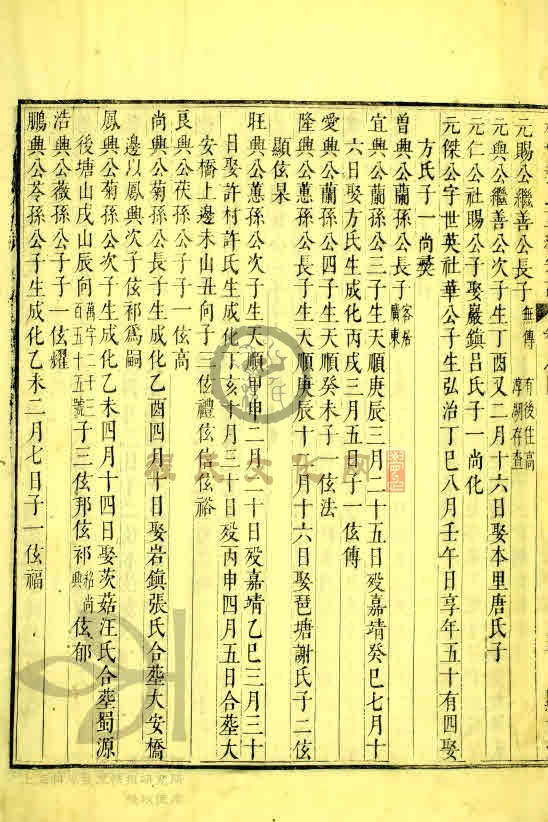 元賜公繼善公長子無傳 有後住高淳湖存查
元興公繼善公次子生丁酉又二月十六日娶本里唐氏子
元仁公社賜公子娶巖鎮呂氏子一尚化
元傑公字世英社華公子生弘治丁巳八月壬午日享年五十有四娶
方氏子一尚燹
曾興公蘭孫公長子客居廣東
宜興公蘭孫公三子生天順庚辰三月二十五日殁嘉靖癸巳七月十
六日娶方氏生成化丙戌三月五日子一伭傳
愛興公蘭孫公四子生天順癸未子一伭法
隆興公蕙孫公長子生天順庚辰十月十六日娶琶塘謝氏子二伭
顯伭杲
旺興公蕙孫公次子生天順甲申二月二十日殁嘉靖乙巳三月三十
日娶許村許氏生成化丁亥十月三十日殁丙申四月五日合塟大
安橋上邊未山丑向子三伭禮伭信伭裕
良興公茯孫公子子一伭高
尚興公菊孫公長子生成化乙酉四月十日娶岩鎮張氏合塟大安橋
邊以鳳興次子伭祁為嗣
鳳興公菊孫公次子生成化乙未四月十四日娶茨菇汪氏合塟蜀源
後塘山戌山辰向萬字二千三百五十五號子三伭邦伭祁紹尚興伭郁
浩興公薇孫公子子一伭耀
鵬興公苓孫公子生成化乙未二月七日子一伭福